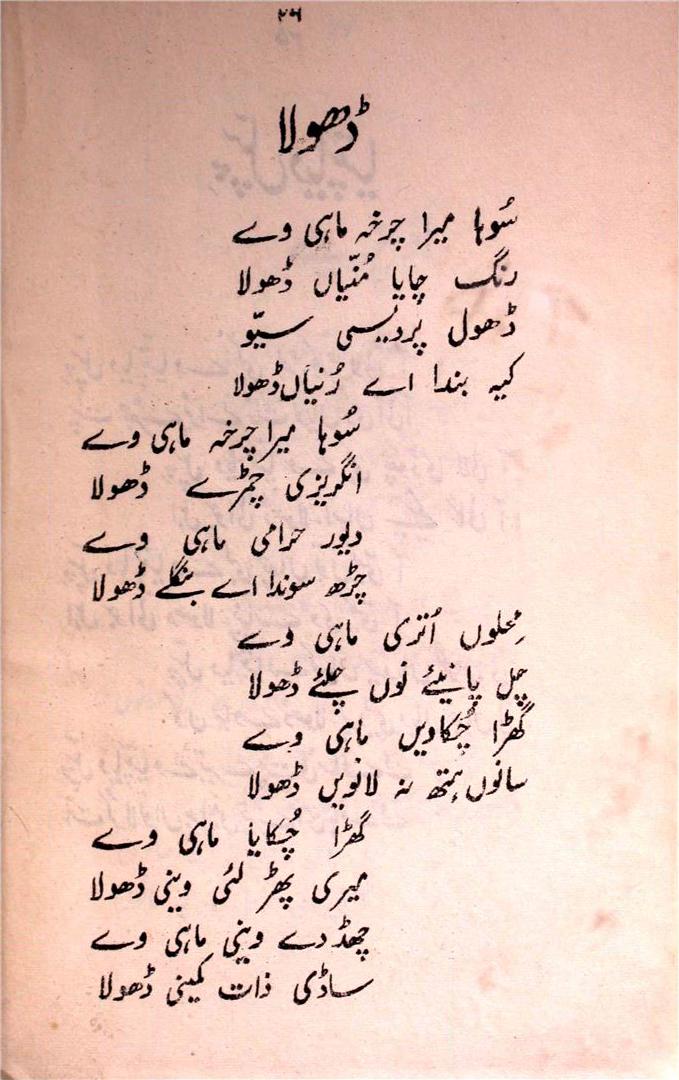 ۲۶
ڈھولا
سُوہا میرا چرخہ ماہی وے
رنگ چایا مُنّیاں ڈھولا
ڈھول پردیسی سیّو
کیہ بندا اے رُنیاں ڈھولا
سُوہا میرا چرخہ ماہی وے
انگریزی چمڑے ڈھولا
دیور حرامی ماہی وے
چڑھ سوندا اے بنگلے ڈھولا
محلوں اُتری ماہی وے
چل پانیئے نوں چلئے ڈھولا
گھڑا چُکاویں ماہی وے
سانوں ہتھ نہ لانویں ڈھولا
گھڑا چُکایا ماہی وے
میری پھڑ لئی وینی ڈھولا
چھڈ دے وینی ماہی وے
ساڈی ذات کمینی ڈھولا